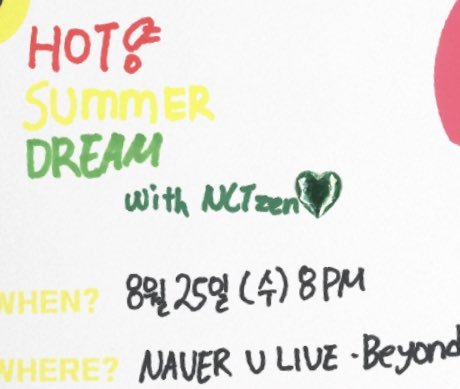 HOT!
SUMMER
DREAM
with NCTzen
WHEN? 8월 25일 (수) 8PM
WHERE? NAVER V LIVE · Beyond